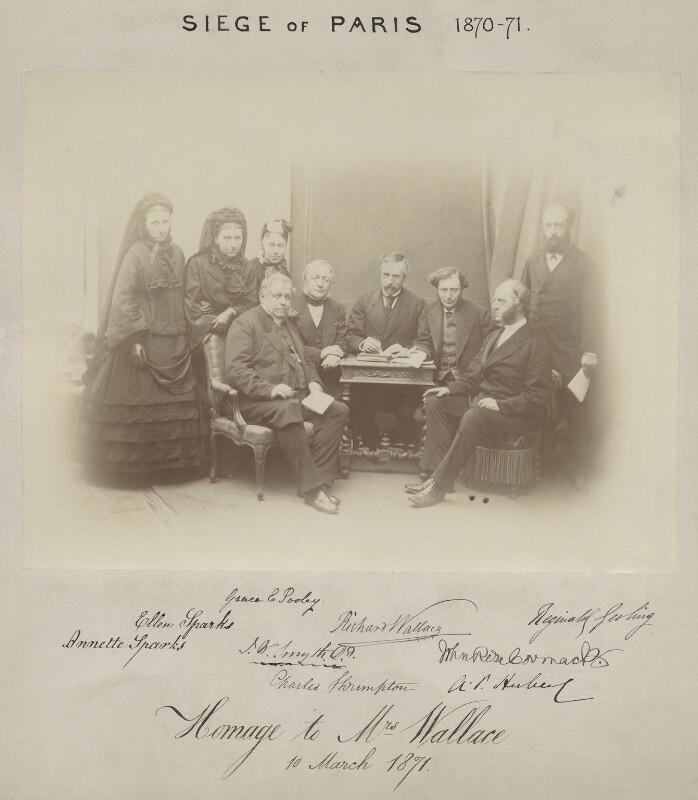 SIEGE OF PARIS 1870-71.
Grace E Pooley
Ellen Sparks
Richard Wallace
Reginald Gesling
Annette Sparks
J. W. Smyth D.D.
John Rose Cormack
Charles Shrimpton
A. S. Herbert
Homage to Mrs Wallace
10 March 1871.